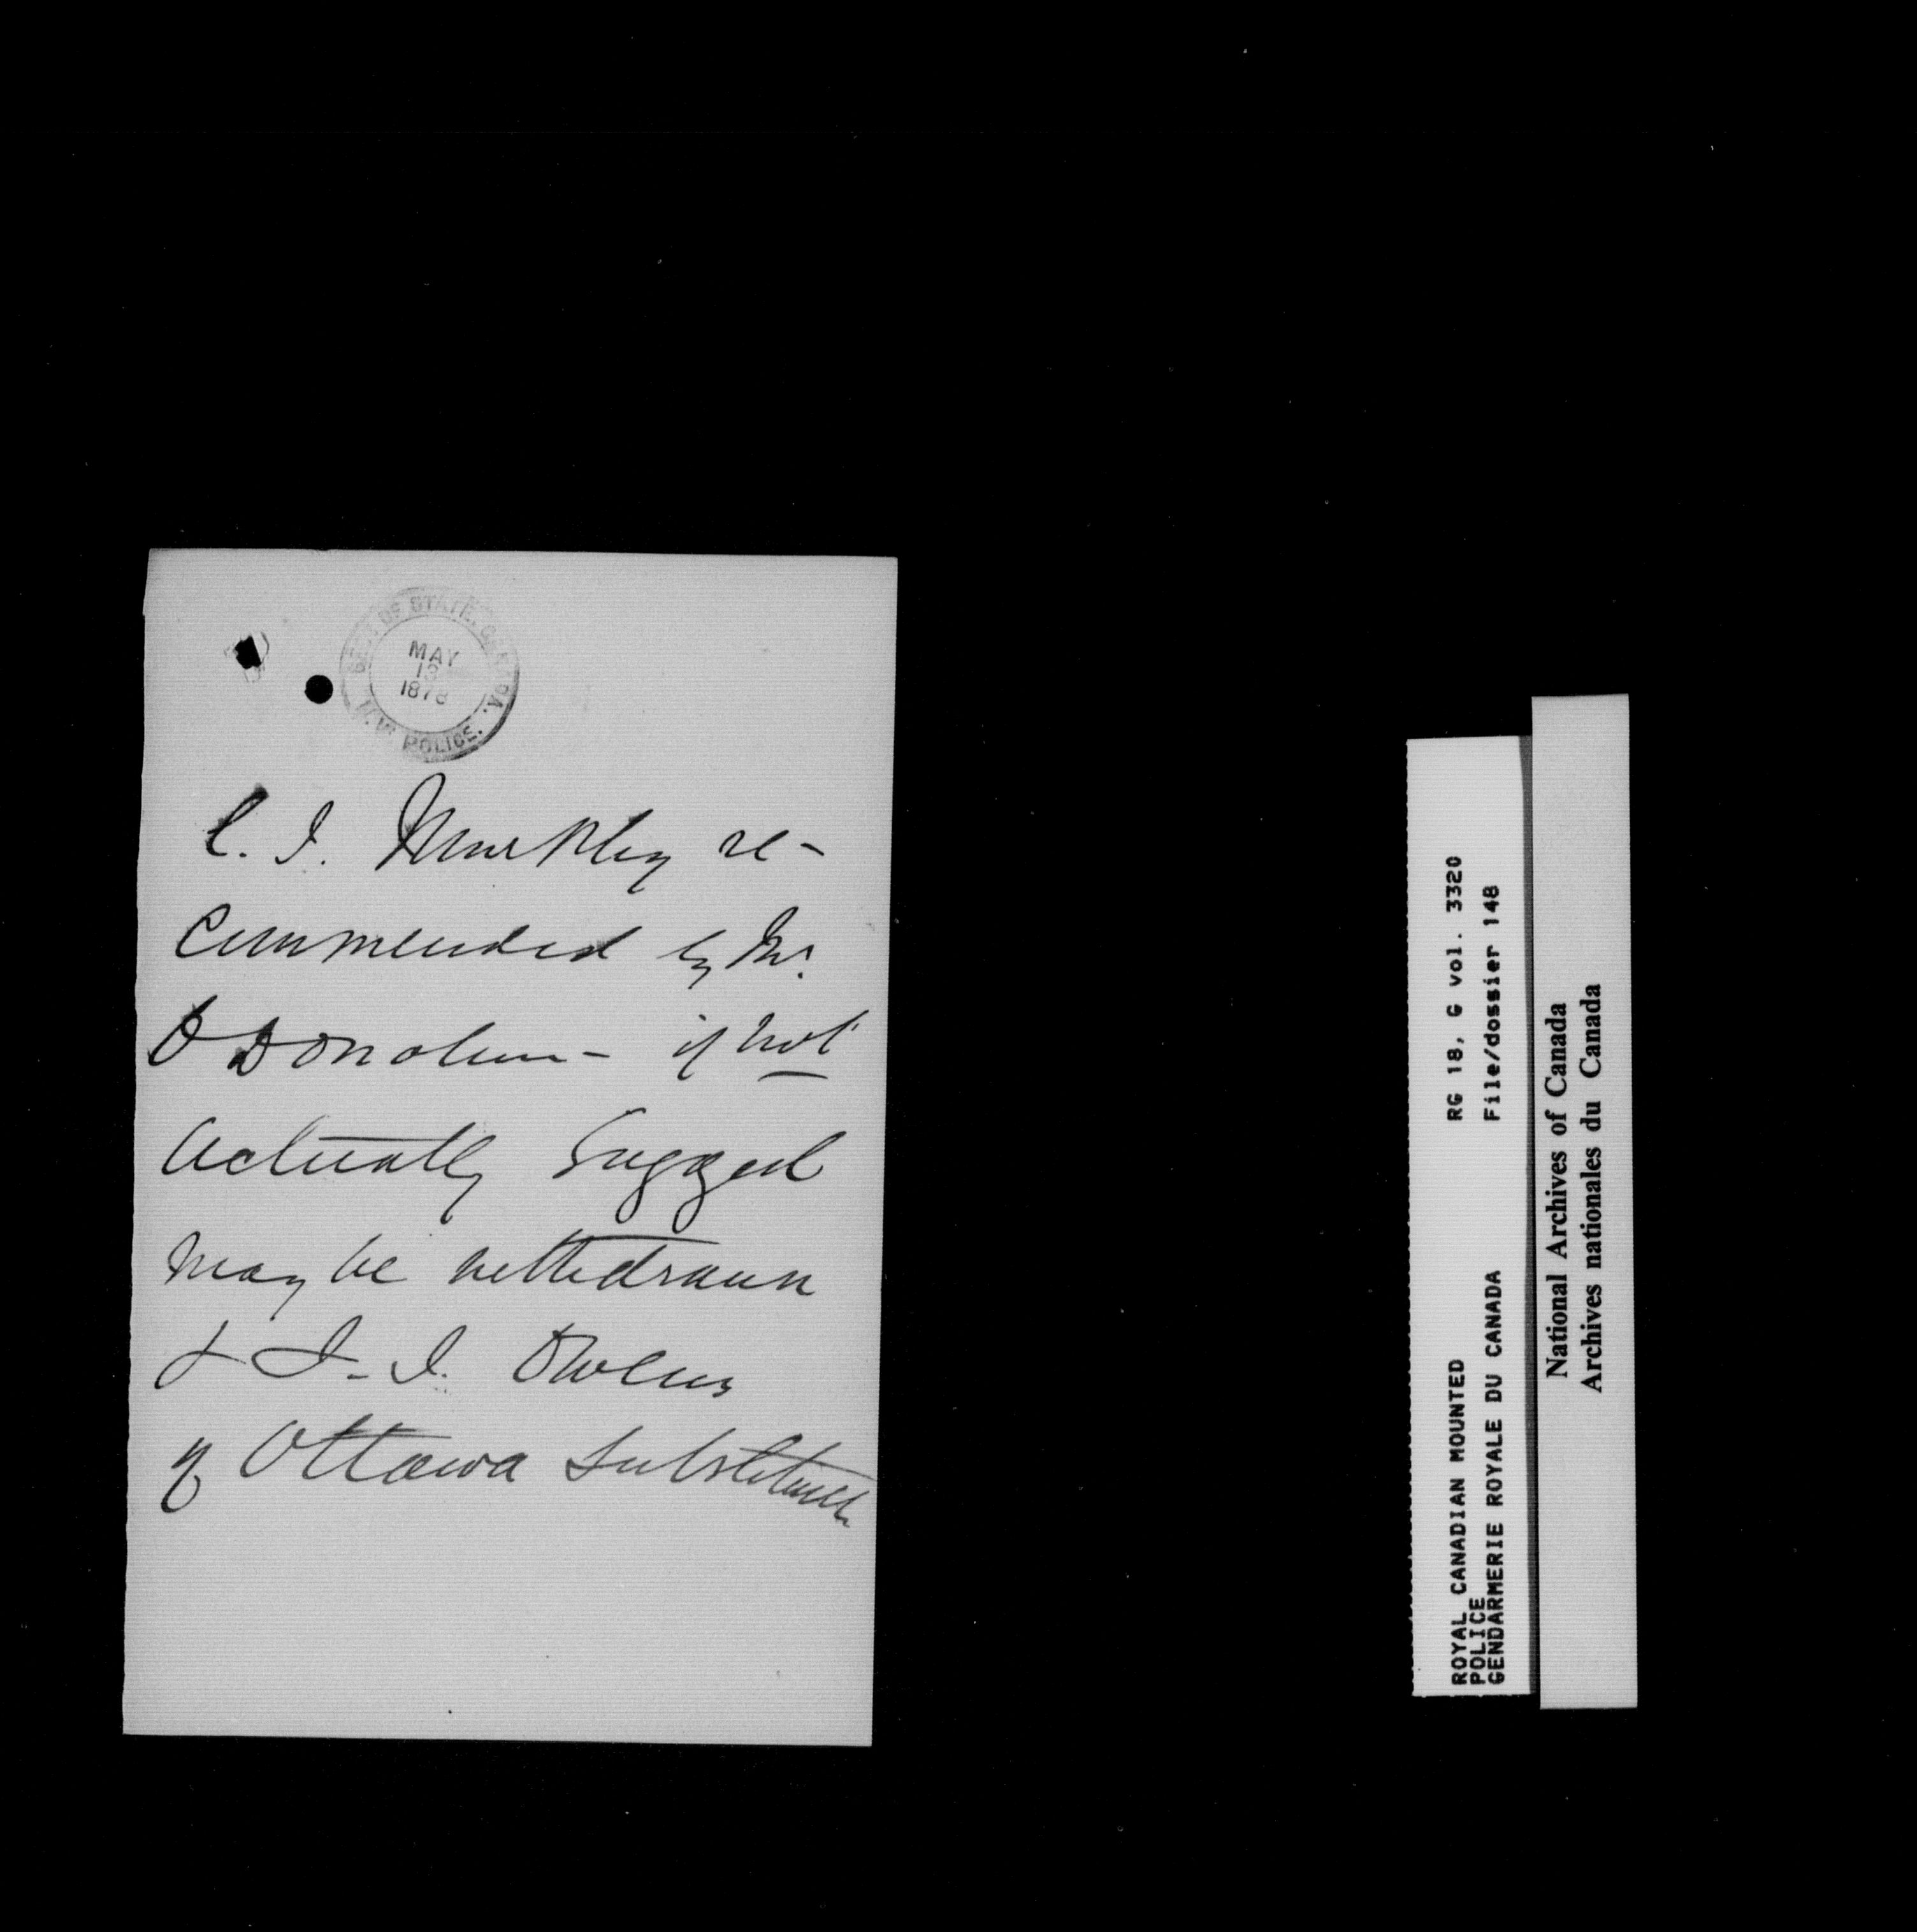 DEPT. OF STATE, CANADA.
MAY
13
1878
N.W. POLICE.
C. I. Markley re-
commended by Mr.
O Donohue - if not
actually engaged
may be withdrawn
& I. I. Owens
of Ottawa substituted
ROYAL CANADIAN MOUNTED
POLICE
GENDARMERIE ROYALE DU CANADA
RG 18, G vol. 3320
File/dossier 148
National Archives of Canada
Archives nationales du Canada